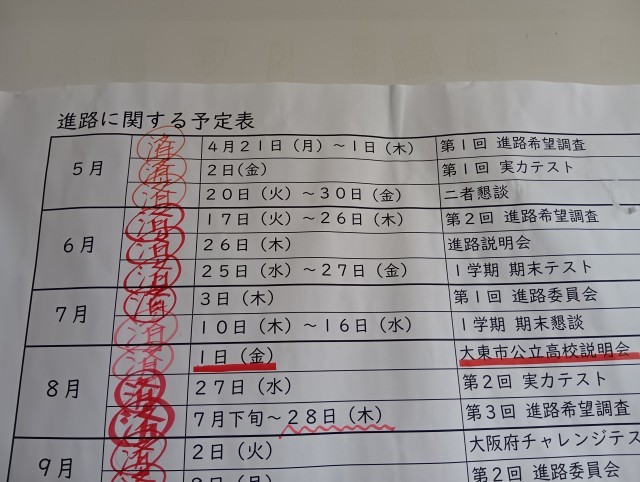 進路に関する予定表
5月
済 4月21日（月）～1日（木） 第1回 進路希望調査
済 2日(金) 第1回 実力テスト
済 20日（火）～30日（金） 二者懇談
6月
済 17日（火）～26日（木） 第2回 進路希望調査
済 26日（木） 進路説明会
済 25日（水）～27日（金） 1学期 期末テスト
7月
済 3日（木） 第1回 進路委員会
済 10日（木）～16日（水） 1学期 期末懇談
8月
済 1日（金） 大東市公立高校説明会
済 27日（水） 第2回 実力テスト
済 7月下旬～28日（木） 第3回 進路希望調査
9月
済 2日（火） 大阪府チャレンジテス
第2回 進路委員会